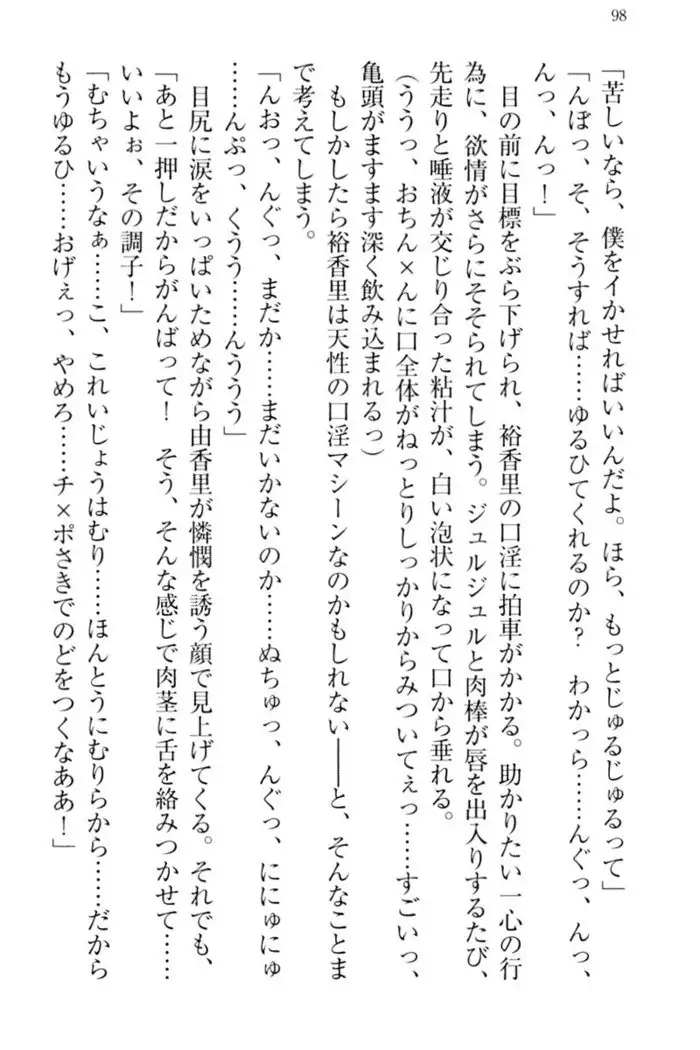 98
「苦しいなら、僕をイかせればいいんだよ。ほら、もっとじゅるじゅるって」
「んぼっ、そ、そうすれば……ゆるひてくれるのか？　わかっら……んぐっ、んっ、
んっ、んっ！」
　目の前に目標をぶら下げられ、裕香里の口淫に拍車がかかる。助かりたい一心の行
為に、欲情がさらにそそられてしまう。ジュルジュルと肉棒が唇を出入りするたび、
先走りと唾液が交じり合った粘汁が、白い泡状になって口から垂れる。
（ううっ、おちん×んに口全体がねっとりしっかりからみついてぇっ……すごいっ、
亀頭がますます深く飲み込まれるっ）
　もしかしたら裕香里は天性の口淫マシーンなのかもしれない――と、そんなことま
で考えてしまう。
「んおっ、んぐっ、まだか……まだいかないのか……ぬちゅっ、んぐっ、ににゅにゅ
……んぷっ、くうう……んううう」
　目尻に涙をいっぱいためながら由香里が憐憫を誘う顔で見上げてくる。それでも、
「あと一押しだからがんばって！　そう、そんな感じで肉茎に舌を絡みつかせて……
いいよぉ、その調子！」
「むちゃいうなぁ……こ、これいじょうはむり……ほんとうにむりらから……だから
もうゆるひ……おげぇっ、やめろ……チ×ポさきでのどをつくなああ！」